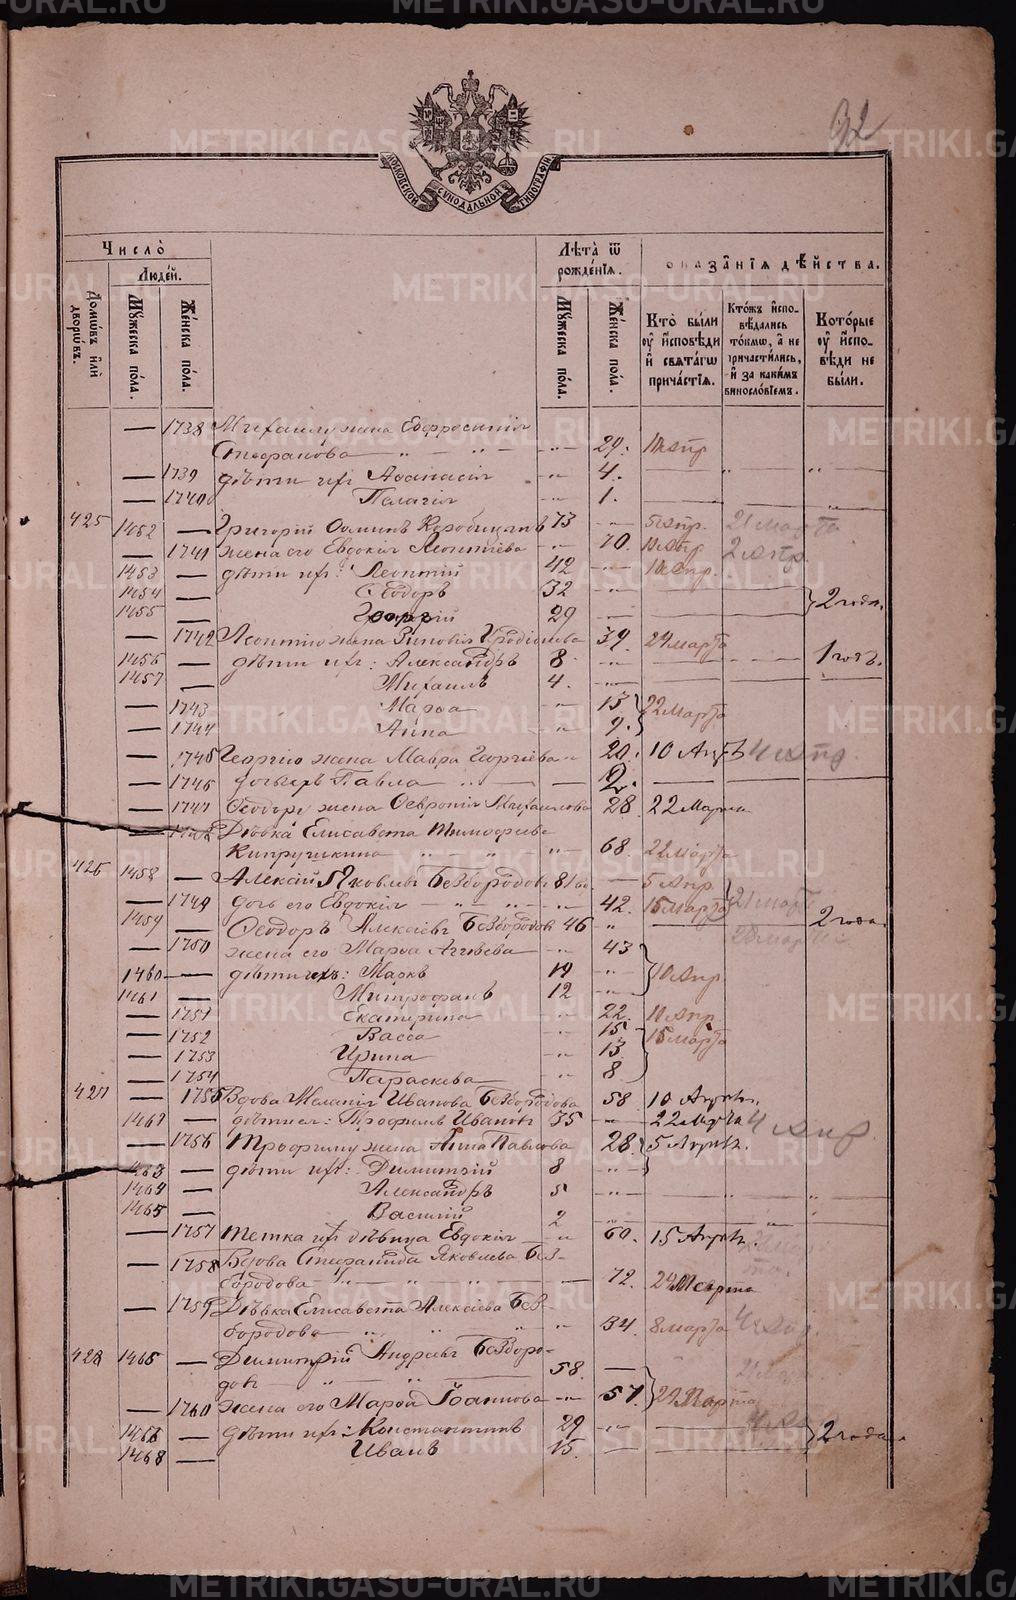 92
МОСКОВСКОЙ СѴНОДАЛЬНОЙ ТИПОГРАФІИ
Число̀
Людей.
Домѡвъ или дворѡвъ.
Мꙋжеска пола.
Женска пола.
Лѣта ѿ рожденїѧ.
Мꙋжеска пола.
Женска пола.
оказанїѧ дѣйства.
Кто были оу исповѣди и свѧтагѡ причастїѧ.
Ктожъ исповѣдались токмѡ, а не причастились, и за какимъ винословїемъ.
Которые оу исповѣди не были.
— 1738 Михаилу жена Евфросинія
Стефанова — 29. 10 апр
— 1739 дѣти их Аѳанасія 4.
— 1740 Пелагія 1.
425 1452 — Григорій Коробицынъ 73 — 5 апр. 21 марта
— 1741 жена его Евдокія Леонтіева 70. 10 апр 2 апр.
1453 — дѣти их: Леонтій 42 — 10 апр.
1454 — Ѳеодоръ 32 —
1455 — Георгій 29 — 2 года.
— 1742 Леонтію жена Зиновія 39. 24 марта
1456 — дѣти их: Александръ 8 1 годъ.
1457 — Михаилъ 4.
— 1743 Марѳа 15 22 Марта
— 1744 Анна 9.
— 1745 Георгію жена Мавра Георгіева 20. 10 Апр 4 апр.
— 1746 дочерь Павла 2.
— 1747 Ѳеодору жена Ѳевронія Михаилова 28 22 Марта
— 1748 Дѣвка Елисавета Тимоѳеева
68. 22 Марта
426 1458 — Алексій Яковлевъ Бездородовъ 81 — 5 Апр.
— 1749 дочь его Евдокія — 42. 15 Марта 21 март
1459 — Ѳеодоръ Алексіевъ Бездородов 46 2 года.
— 1750 жена его Марѳа Аггѣева — 43
1460 — дѣти ихъ: Маркъ 19 10 Апр.
1461 — Митрофанъ 12
— 1751 Екатерина 22. 10 Апр
— 1752 Васса 15 15 Марта
— 1753 Ирина 13
— 1754 Параскева 8
427 — 1755 Вдова Меланія Иванова Бездородова 58 10 Апр.
1461 — Трофимъ Ивановъ 35 — 22 Марта 4 апр
— 1756 Трофиму жена Анна Павлова 28 5 Апр.
1463 — дѣти их: Димитрій 8
1464 — Александръ 5
1465 — Василій 2
— 1757 тетка их дѣвица Евдокія 60. 15 Апр.
— 1758 Вдова Яковлева Без-
бородова — 72. 24 Марта
— 1759 Дѣвка Елисавета Алексіева Без-
бородова 34. 8 марта 4 апр.
428 1465 — Димитрій Андреевъ Бездоро-
довъ 58. —
— 1760 жена его Марѳа Іоаннова 57. 24 Марта
1466 — дѣти их: Константинъ 29
1468 — Иванъ 15. 2 года.
METRIKI.GASO-URAL.RU